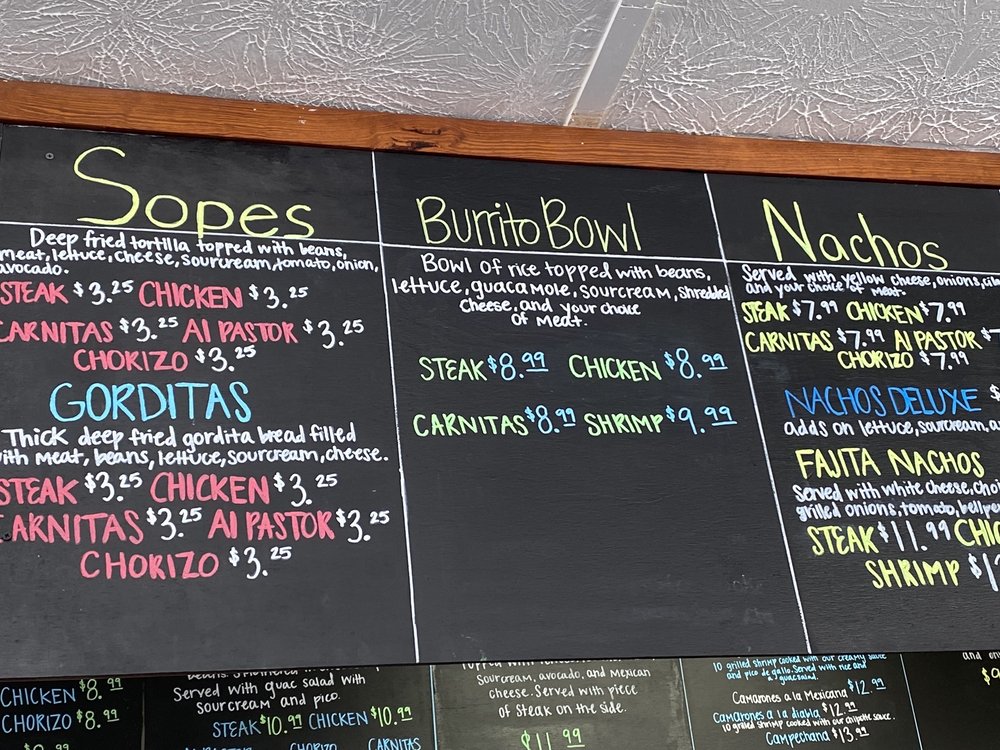 Sopes
Deep fried tortilla topped with beans,
meat, lettuce, cheese, sourcream, tomato, onion,
avocado.
STEAK $3.25 CHICKEN $3.25
CARNITAS $3.25 Al PASTOR $3.25
CHORIZO $3.25
GORDITAS
Thick deep fried gordita bread filled
with meat, beans, lettuce, sourcream, cheese.
STEAK $3.25 CHICKEN $3.25
CARNITAS $3.25 Al PASTOR $3.25
CHORIZO $3.25
Burrito Bowl
Bowl of rice topped with beans,
lettuce, guacamole, sourcream, shredded
cheese, and your choice
of meat.
STEAK $8.99 CHICKEN $8.99
CARNITAS $8.99 SHRIMP $9.99
Nachos
Served with yellow cheese, onions,
and your choice of meat.
STEAK $7.99 CHICKEN $7.99
CARNITAS $7.99 Al PASTOR $7
CHORIZO $7.99
NACHOS DELUXE $
adds on lettuce, sourcream,
FAJITA NACHOS
Served with white cheese,
grilled onions, tomato,
STEAK $11.99
SHRIMP
CHICKEN $8.99
CHORIZO $8.99
Served with guac salad with
sourcream and pico.
STEAK $10.99 CHICKEN $10.99
CHORIZO CARNITAS
sourcream, avocado, and mexican
cheese. Served with piece
of steak on the side.
$11.99
10 grilled shrimp cooked with our creamy sauce
and pico de gallo. Served with rice and
a guacsalad.
Camarones a la Mexicana $12.99
Camarones a la diabla $12.99
10 grilled shrimp cooked with our chipotle sauce.
Campechana $13.99